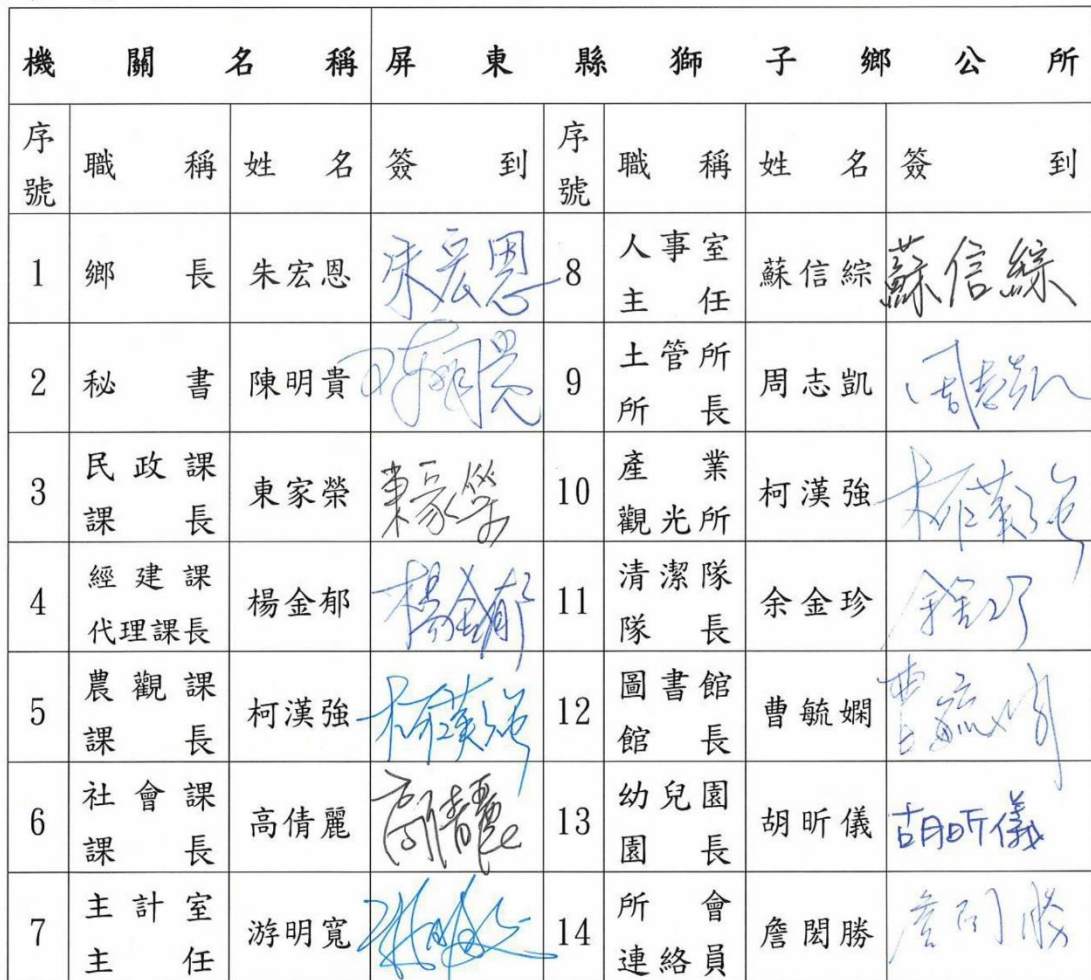 機關名稱 屏東縣獅子鄉公所
序號 職稱 姓名 簽到 序號 職稱 姓名 簽到
1 鄉長 朱宏恩 朱宏恩 8 人事室主任 蘇信綜 蘇信綜
2 秘書 陳明貴 陳明貴 9 土管所所長 周志凱 周志凱
3 民政課課長 東家榮 東家榮 10 產業觀光所 柯漢強 柯漢強
4 經建課代理課長 楊金郁 楊金郁 11 清潔隊隊長 余金珍 余金珍
5 農觀課課長 柯漢強 柯漢強 12 圖書館館長 曹毓嫻 曹毓嫻
6 社會課課長 高倩麗 高倩麗 13 幼兒園園長 胡昕儀 胡昕儀
7 主計室主任 游明寬 14 所會連絡員 詹閎勝 詹閎勝